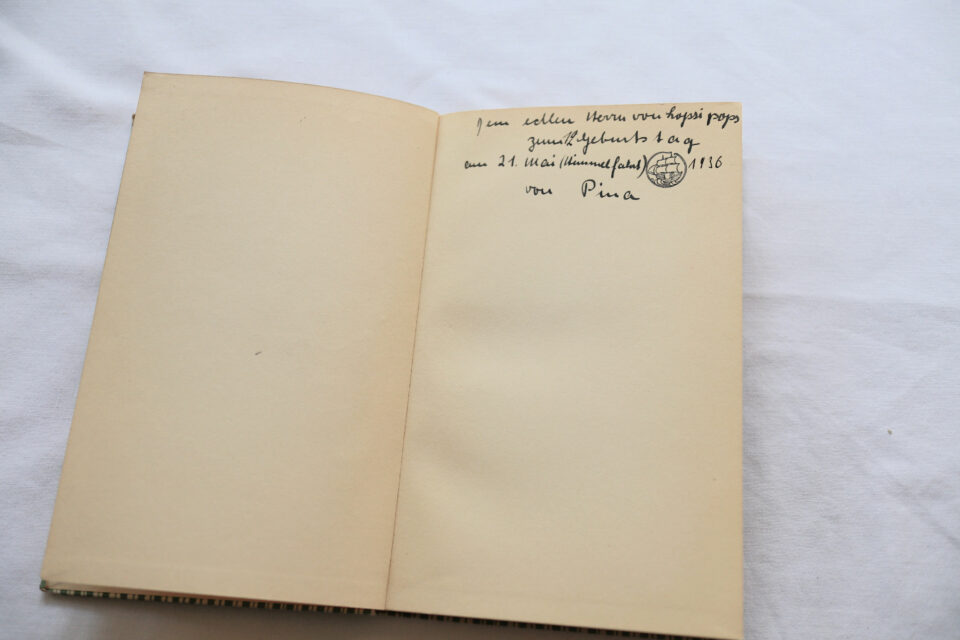 Dem edlen Herrn von hopsi pops
zum 12. Geburtstag
am 21. Mai (Himmelfahrt) 1936
von Pina